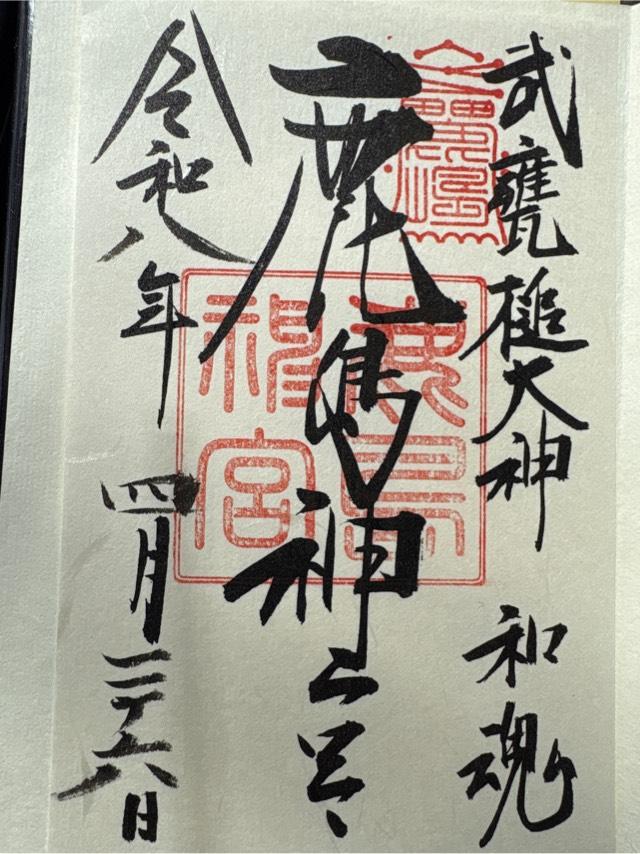 武甕槌大神 和魂
鹿島神宮
鹿島
神宮
令和八年 四月二十六日